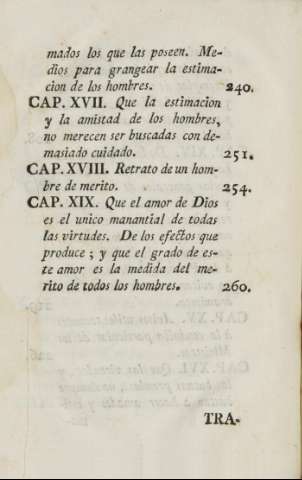 mados los que las poseen. Me-
dios para grangear la estima-
cion de los hombres. 240.
CAP. XVII. Que la estimacion
y la amistad de los hombres,
no merecen ser buscadas con de-
masiado cuidado. 251.
CAP. XVIII. Retrato de un hom-
bre de merito. 254.
CAP. XIX. Que el amor de Dios
es el unico manantial de todas
las virtudes. De los efectos que
produce ; y que el grado de es-
te amor es la medida del me-
rito de todos los hombres. 260.
TRA-